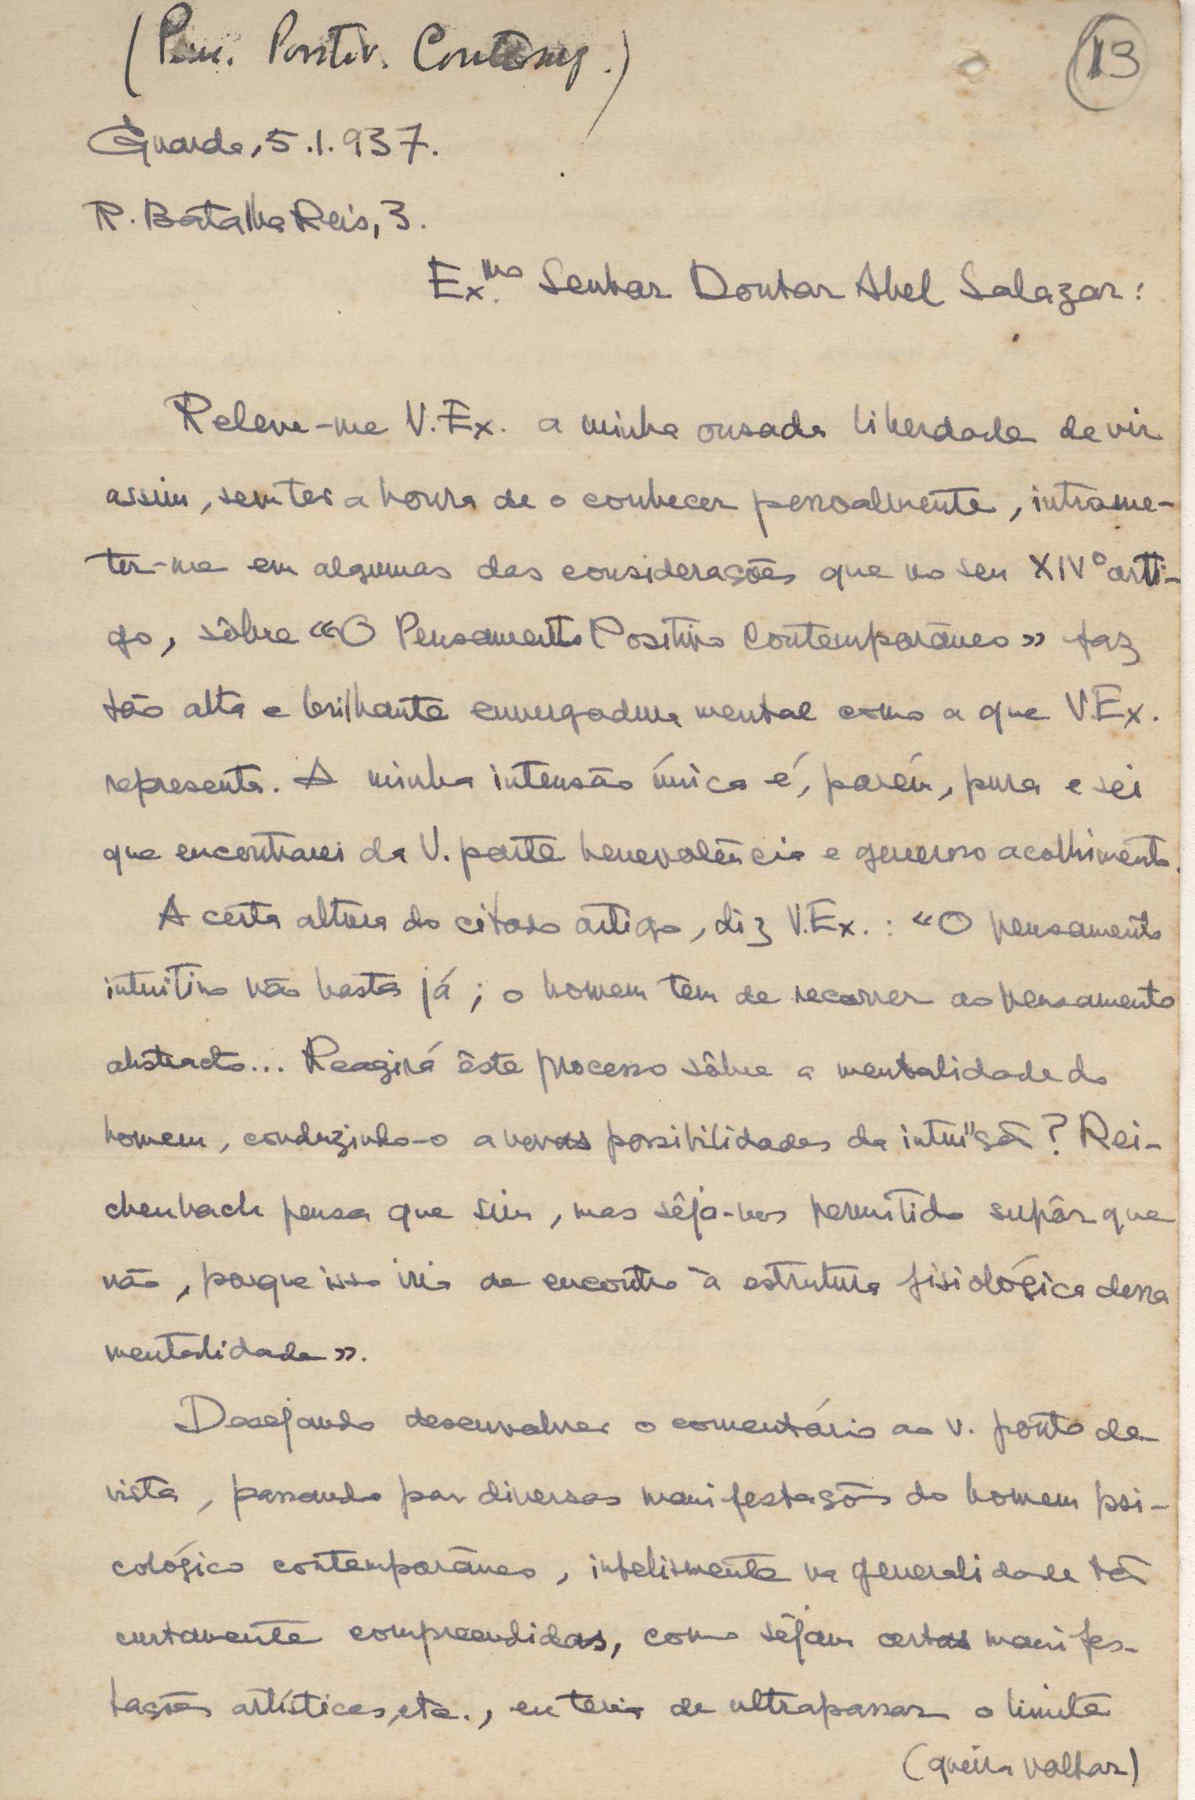 (Pens. Positiv. Contemp.)
13
Guarda, 5.1.937.
R. Batalha Reis, 3.
Ex.mo Senhor Doutor Abel Salazar:
Releve-me V. Ex. a minha ousada liberdade de vir
assim, sem ter a honra de o conhecer pessoalmente, introme-
ter-me em algumas das considerações que no seu XIVº arti-
go, sôbre «O Pensamento Positivo Contemporâneo» faz
tão alta e brilhante envergadura mental como a que V. Ex.
representa. A minha intensão única é, porém, pura e sei
que encontrarei da V. parte benevolência e generoso acolhimento.
A certa altura do citado artigo, diz V. Ex.: «O pensamento
intuitivo não basta já; o homem tem de recorrer ao pensamento
abstracto... Reagirá êste processo sôbre a mentalidade do
homem, conduzindo-o a novas possibilidades da intuïção? Rei-
chenbach pensa que sim, mas sêja-nos permitido supôr que
não, porque isso iria de encontro à estrutura fisiológica dessa
mentalidade».
Desejando desenvolver o comentário ao v. ponto de
vista, passando por diversas manifestações do homem psi-
cológico contemporâneo, infelismente na generalidade tão
curtamente compreendidas, como sêjam certas manifes-
tações artísticas, etc., eu teria de ultrapassar o limite
(queira voltar)